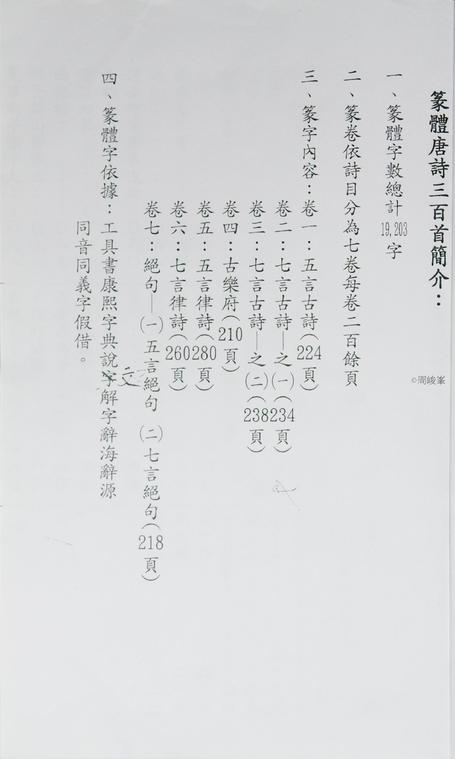 篆體唐詩三百首簡介：
一、篆體字數總計19,203字
二、篆卷依詩目分為七卷每卷二百餘頁
三、篆字內容：卷一：五言古詩(224頁)
卷二：七言古詩—之㈠(234頁)
卷三：七言古詩—之㈡(238頁)
卷四：古樂府(210頁)
卷五：五言律詩(280頁)
卷六：七言律詩(260頁)
卷七：絕句—㈠五言絕句 ㈡七言絕句(218頁)
四、篆體字依據：工具書康熙字典說字解字辭海辭源
文
同音同義字假借。
©周峻峯